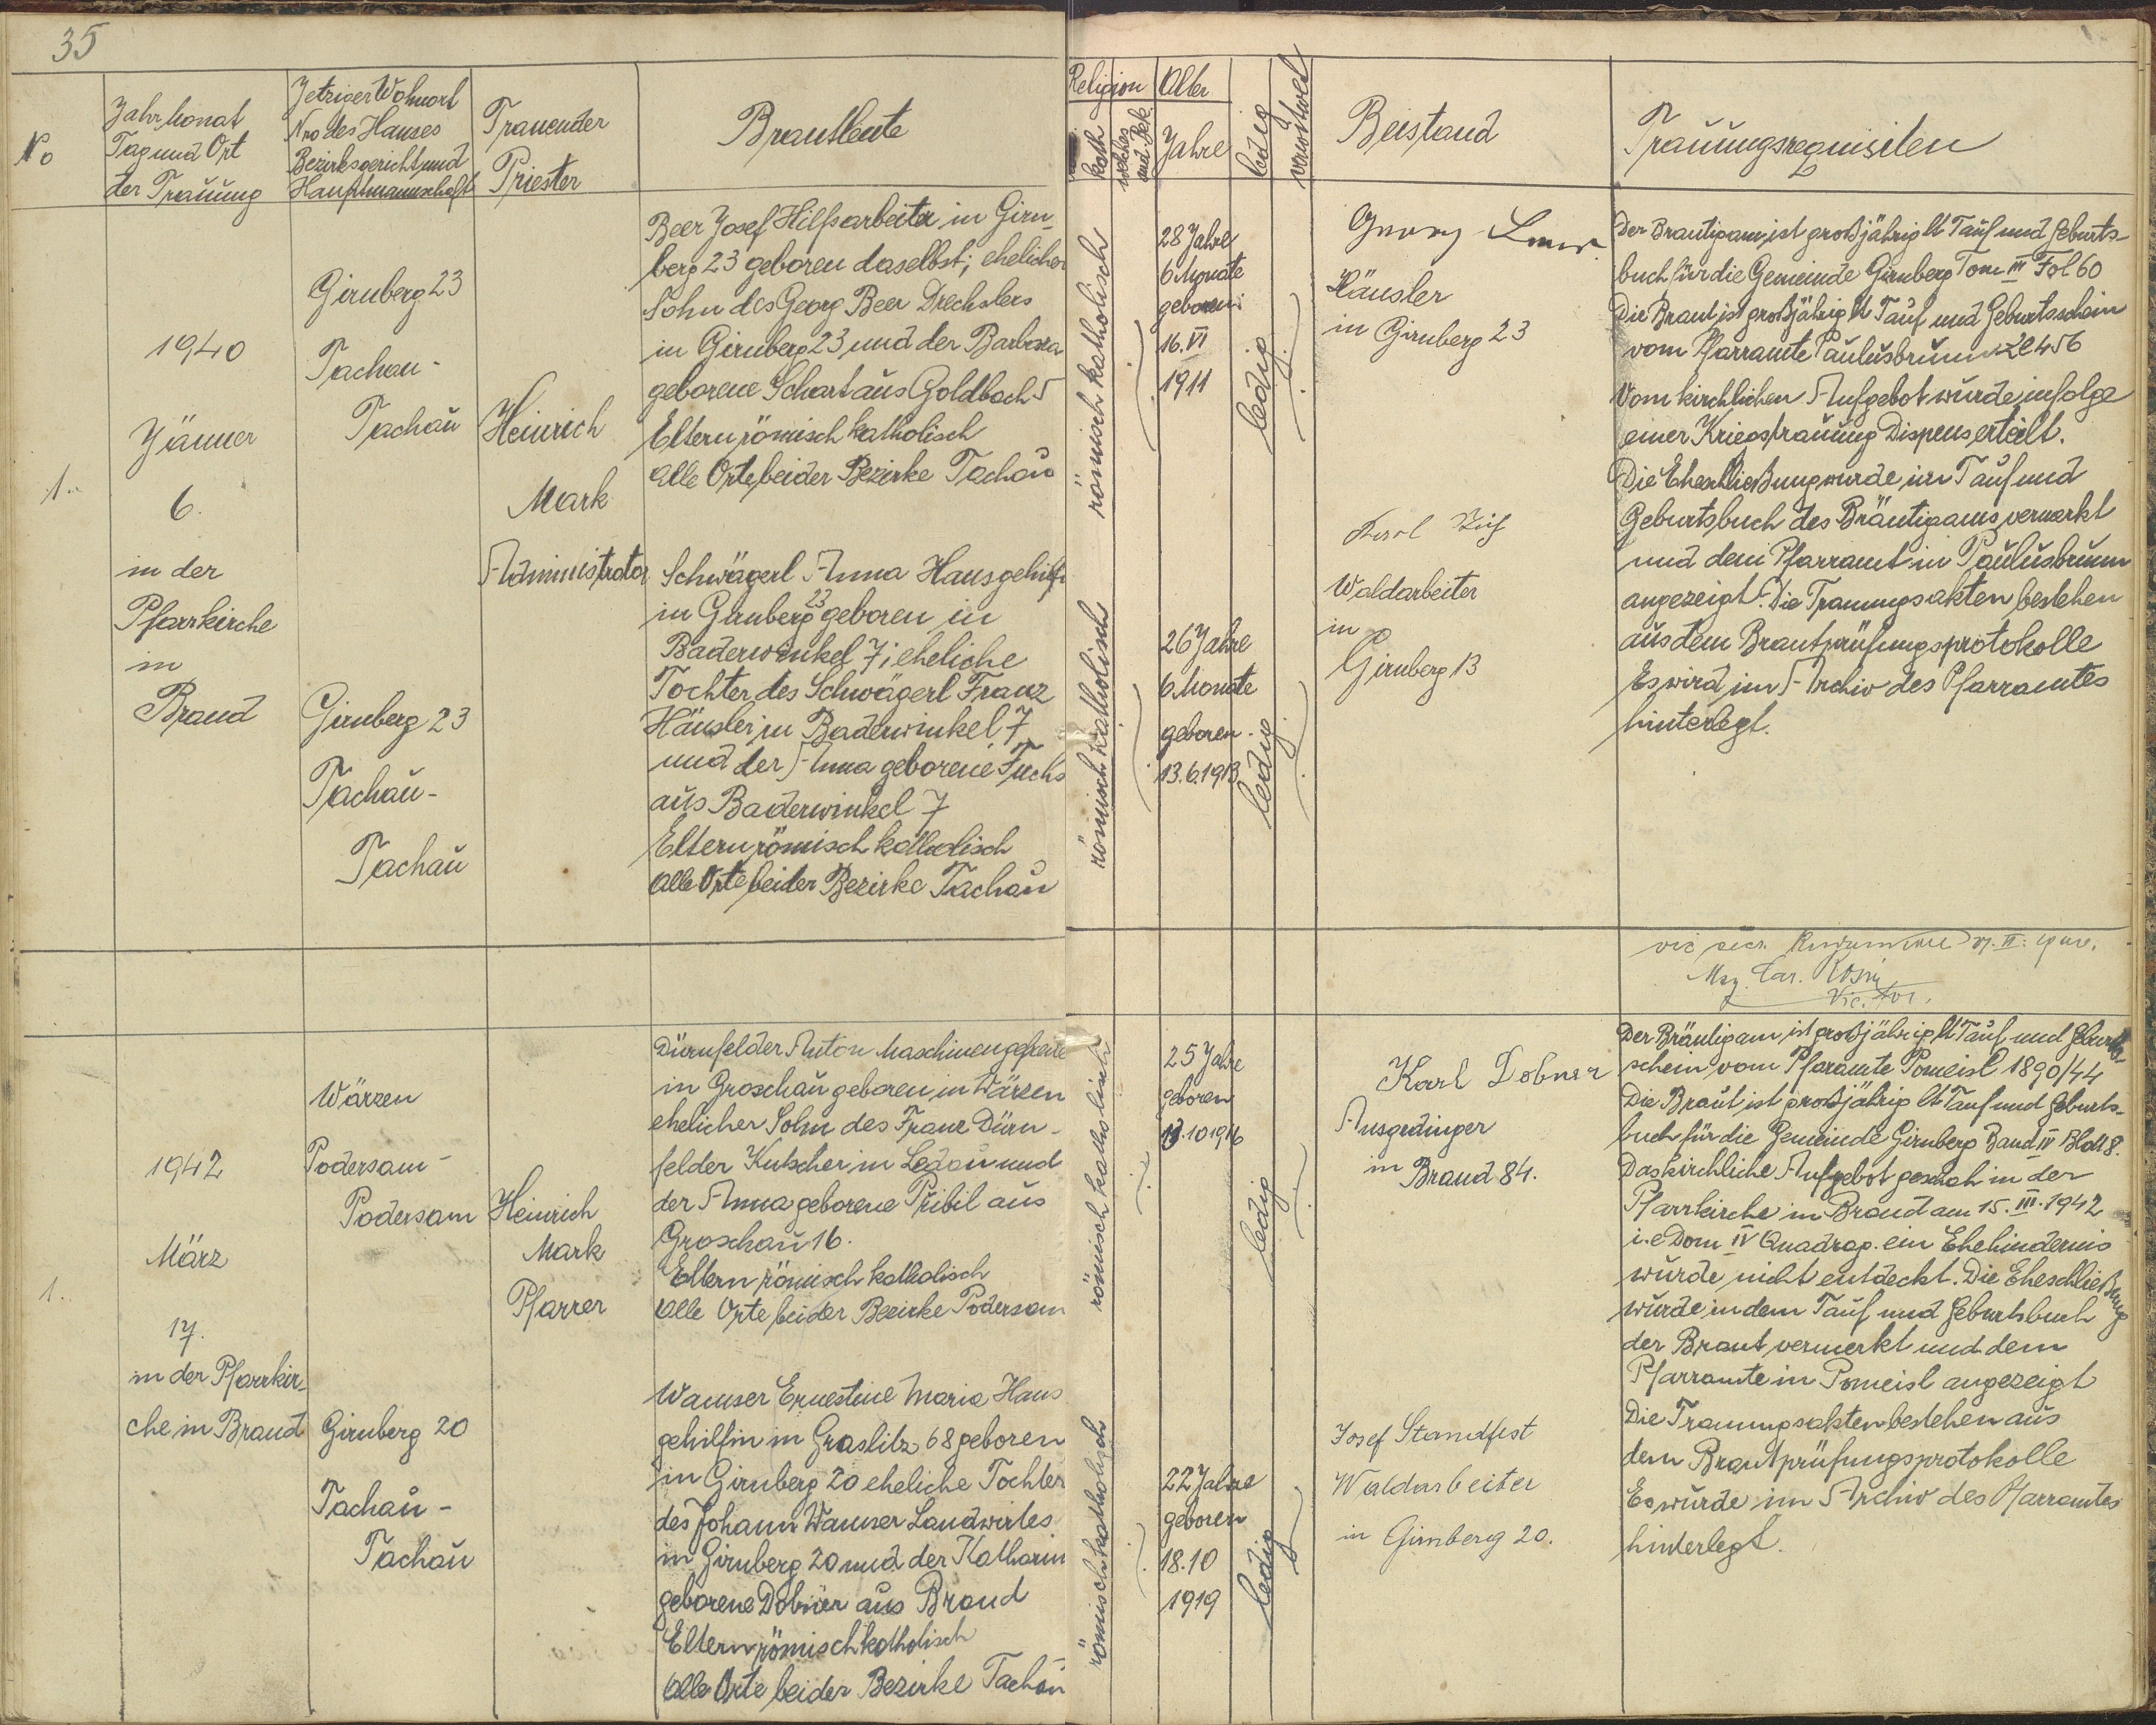 35
No
Jahr Monat
Tag und Ort
der Trauung
Jetziger Wohnort
Nro des Hauses
Bezirksgericht und
Hauptmannschaft
Trauender
Priester
Brautleute
Religion
kath
welches
und Bek.
Alter
Jahre
ledig
verwitwet
Beistand
Trauungsrequisiten
1.
1940
Jänner
6.
in der
Pfarrkirche
in
Brand
Girnberg 23
Tachau-
Tachau
Girnberg 23
Tachau-
Tachau
Heinrich
Mark
Administrator
Beer Josef Hilfsarbeiter in Girn-
berg 23 geboren daselbst; ehelicher
Sohn des Georg Beer Drechslers
in Girnberg 23 und der Barbara
geborene Schart aus Goldbach 5
Eltern römisch katholisch
Alle Orte beider Bezirke Tachau
Schwägerl Anna Hausgehilf
in Girnberg 23 geboren in
Baderwinkel 7; eheliche
Tochter des Schwägerl Franz
Häusler in Baderwinkel 7
und der Anna geborene Fuchs
aus Baderwinkel 7
Eltern römisch katholisch
Alle Orte beider Bezirke Tachau
römisch katholisch
römisch katholisch
28 Jahre
6 Monate
geboren:
16. VI
1911
26 Jahre
6. Monate
geboren.
13.6.1913
ledig
ledig
Georg
Häusler
in Girnberg 23
Karl
Waldarbeiter
in
Girnberg 13
Der Bräutigam ist großjährig lt Tauf und Geburts-
buch für die Gemeinde Girnberg Tom III Fol 60
Die Braut ist großjährig lt Tauf und Geburtsschein
vom Pfarramte Paulusbrunn Zl 456
Vom kirchlichen Aufgebot wurde infolge
einer Kriegstrauung Dispens erteilt.
Die Eheschließung wurde im Tauf und
Geburtsbuch des Bräutigams vermerkt
und dem Pfarramt in Paulusbrunn
angezeigt. Die Trauungsakten bestehen
aus dem Brautprüfungsprotokolle
Es wird im Archiv des Pfarramtes
hinterlegt.
Mag. Car.
Vic. for.
1.
1942
März
17.
in der Pfarrkir-
che in Brand
Wärzen
Podersam-
Podersam
Girnberg 20
Tachau-
Tachau
Heinrich
Mark
Pfarrer
Dürnfelder Anton Maschinengefreite
in Groschau geboren in Wärzen
ehelicher Sohn des Franz Dürn-
felder Kutscher in Ledau und
der Anna geborene Přibil aus
Groschau 16.
Eltern römisch katholisch
Alle Orte beider Bezirke Podersam
Wamser Ernestine Maria Haus
gehilfin in Graslitz 68 geboren
in Girnberg 20 eheliche Tochter
des Johann Wamser Landwirtes
in Girnberg 20 und der Katharin
geborene Dobner aus Brand
Eltern römisch katholisch
Alle Orte beider Bezirke Tachau
römisch katholisch
römisch katholisch
25 Jahre
geboren
13.10 1916
22 Jahre
geboren
18.10
1919
ledig
ledig
Karl Dobner
Ausgedinger
in Brand 84.
Josef Standfest
Waldarbeiter
in Girnberg 20.
Der Bräutigam ist großjährig lt Tauf und Geburts-
schein vom Pfaramte Pomeisl 1890/44
Die Braut ist großjährig lt Tauf und Geburts-
buch für die Gemeinde Girnberg Band IV Blatt 8.
Das kirchliche Aufgebot geschah in der
Pfarrkirche in Brand am 15. III. 1942
i.e Dom IV Quadrag. ein Ehehindernis
wurde nicht entdeckt. Die Eheschließung
wurde in dem Tauf und Geburtsbuch
der Braut vermerkt und dem
Pfarramte in Pomeisl angezeigt
Die Trauungsakten bestehen aus
dem Brautprüfungsprotokolle
Es wurde im Archiv des Pfarramtes
hinterlegt.